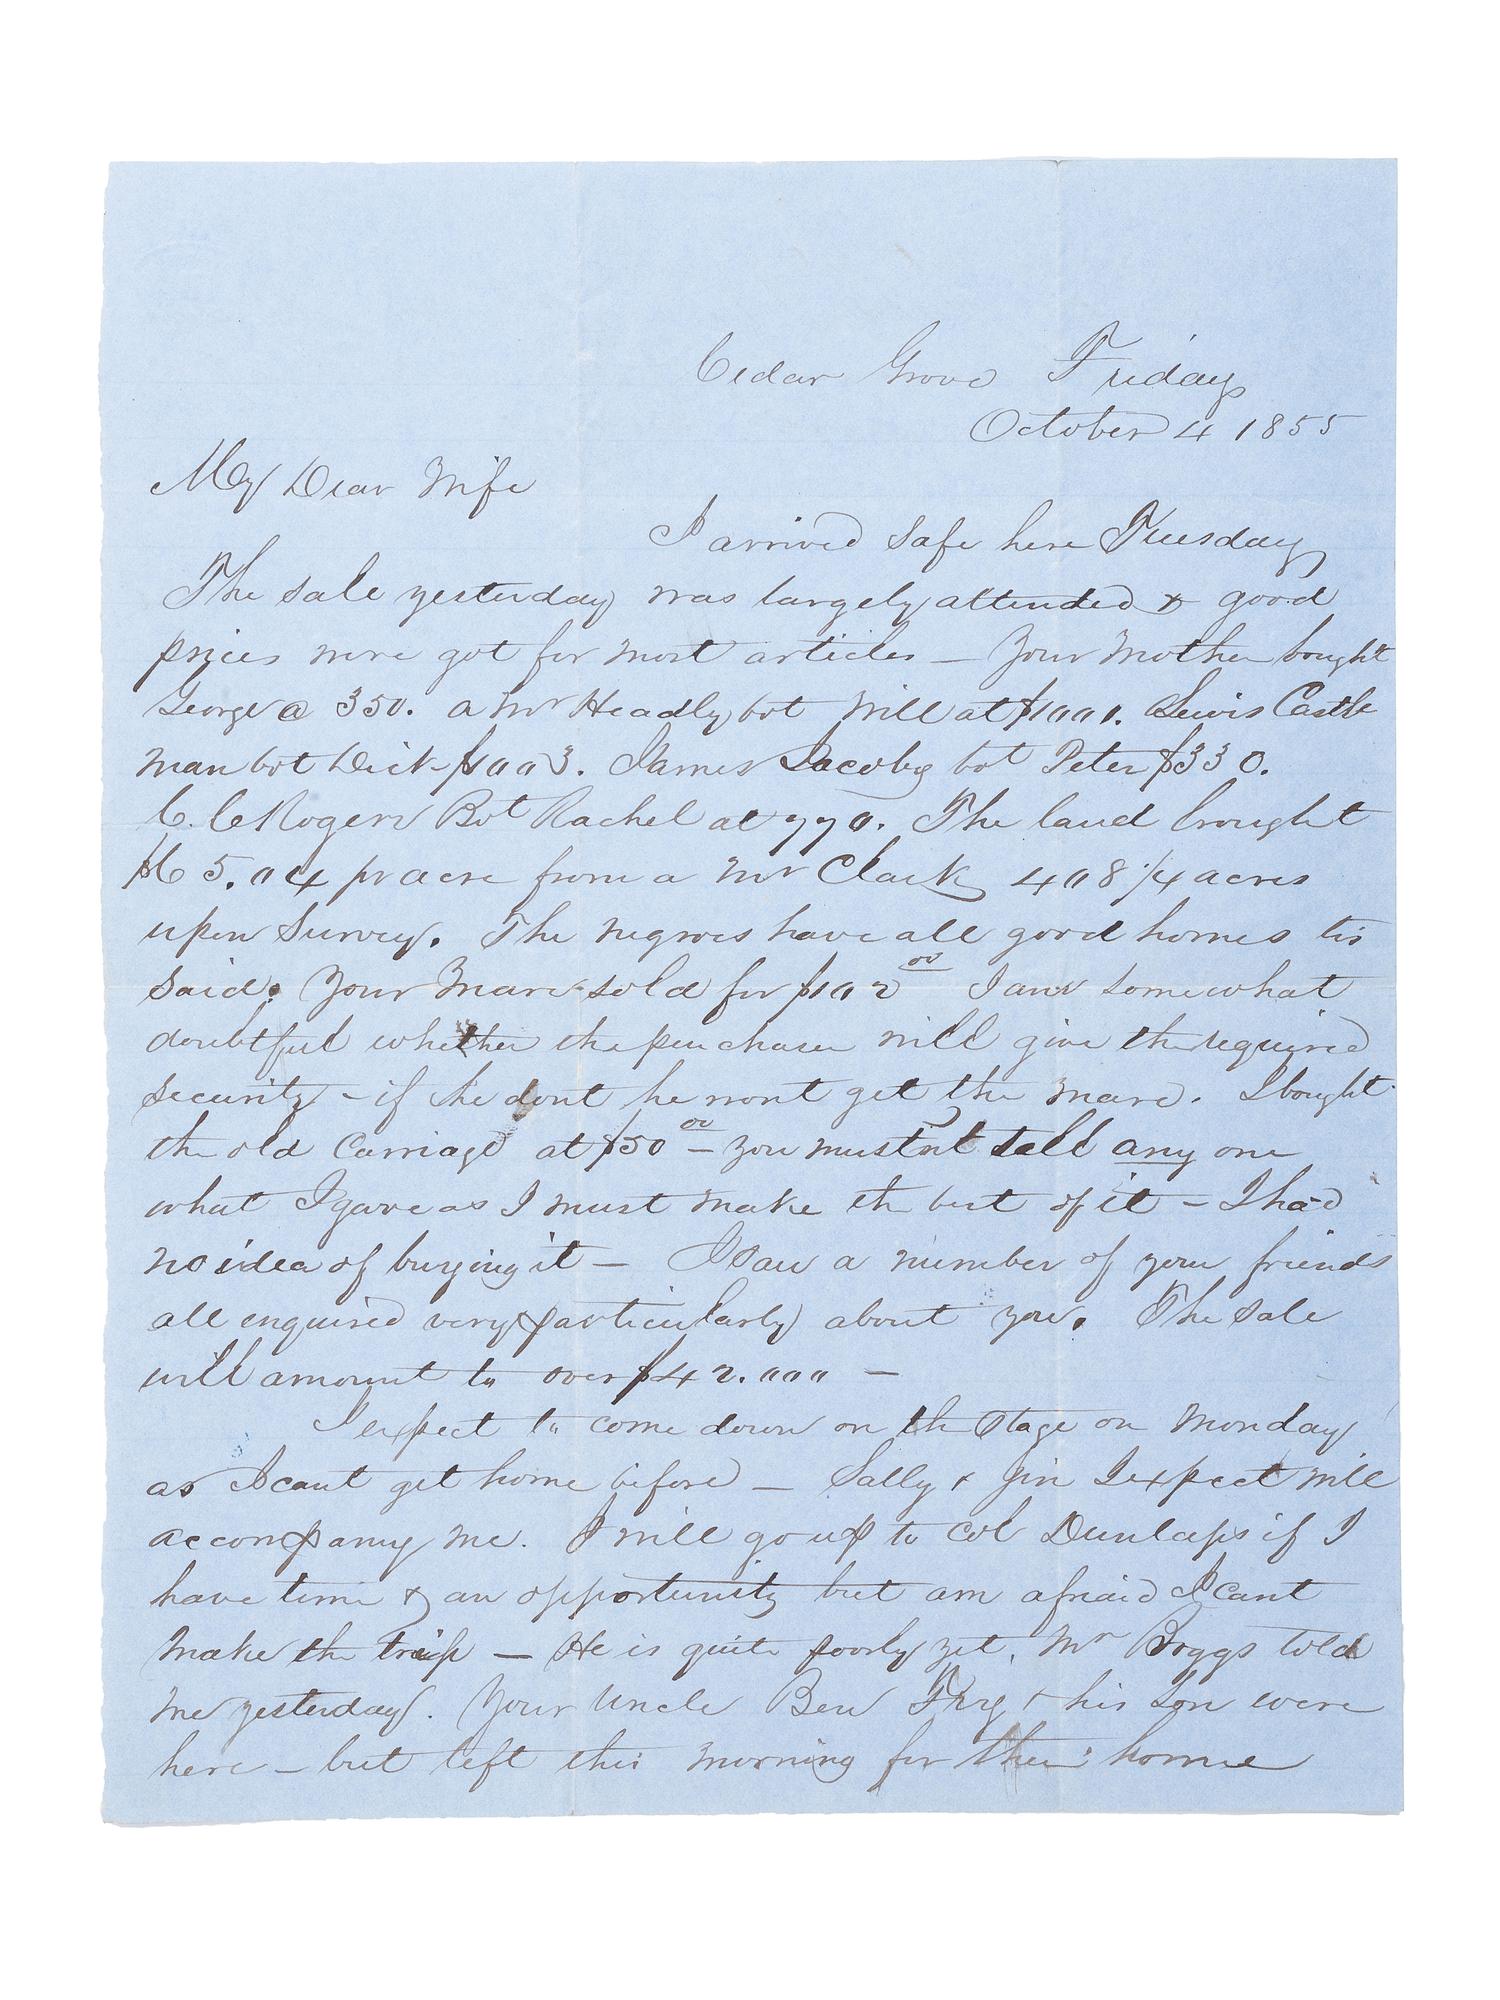 Cedar Grove Friday
October 4 1855
My Dear Wife
I arrived safe here Tuesday
The sale yesterday was largely attended & good
prices were got for most articles — Your Mother bought
George @ 350. a Mr Headly bot Will at $1001. Lewis Castle
man bot Dick $1003. James Jacoby bot Peter $330.
C. C Rogers Bot Rachel at 770. The land brought
$65.04 pr acre from a Mr Clark 408 1/4 acres
upon Survey. The negroes have all good homes tis
said. Your Mare sold for $102 00 I am somewhat
doubtful whether the purchaser will give the required
security – if he dont he wont get the mare. I bought
the old Carriage at $50 00 – you mustnt tell any one
what I gave as I must make the best of it – I had
no idea of buying it – I saw a number of your friends
all enquired very particularly about you. The Sale
will amount to over $42.000 —
I expect to come down on the Stage on Monday
as I cant get home before — Sally & Jim I expect will
accompany me. I will go up to Col Dunlaps if I
have time & an opportunity but am afraid I cant
make the trip — He is quite poorly yet, Mr Boggs told
me yesterday. Your Uncle Ben & his Son were
here – but left this morning for their home